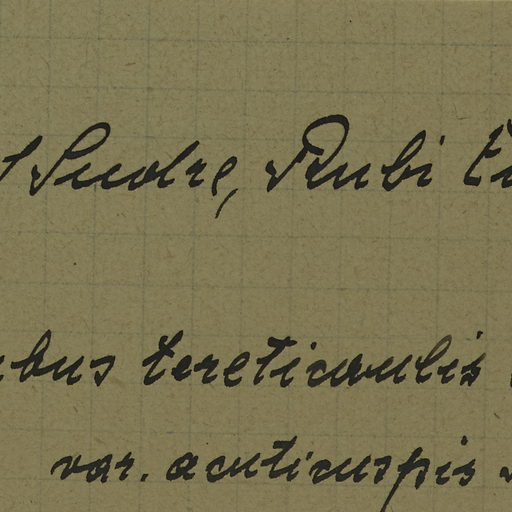 Sudre, Rubi
tereticaulis
var. acuticuspis